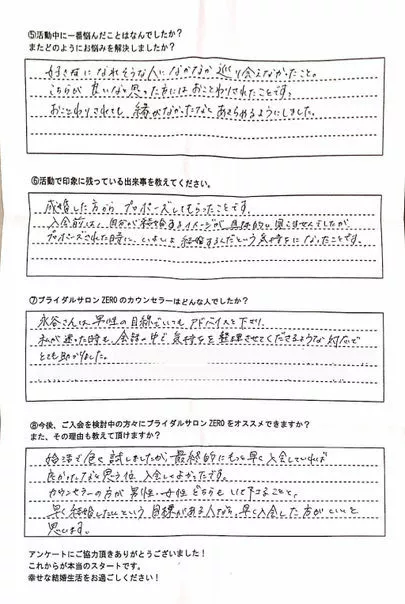 ⑤活動中に一番悩んだことはなんでしたか？
またどのようにお悩みを解決しましたか？
好きになれそうな人になかなか巡り会えなかったこと。
こちらが良いなと思った方にはおことわりされたことです。
おことわりされても、縁がなかったなと あきらめるようにしました。
⑥活動で印象に残っている出来事を教えてください。
成婚した方から プロポーズしてもらったことです。
入会前は、自分が結婚するイメージが 具体的に 思えませんでしたが、
プロポーズされた時に、いよいよ 結婚するんだという 気持ちになったことです。
⑦ブライダルサロン ZERO のカウンセラーはどんな人でしたか？
永谷さんは、男性の目線でいつも アドバイスを下さり、
私が迷った時も、会話の中で 気持ちを 整理させてくださるような対応で
とても助かりました。
⑧今後、ご入会を検討中の方々にブライダルサロン ZERO をオススメできますか？
また、その理由も教えて頂けますか？
婚活で色々試しましたが、最終的にもっと早く入会していれば
良かったなと思う位、入会してよかったです。
カウンセラーの方が 男性・女性 どちらも いて下さることと、
早く結婚したいという 目標がある人なら、早く入会した方がいいと
思います。
アンケートにご協力頂きありがとうございました！
これからが本当のスタートです。
幸せな結婚生活をお過ごしください！